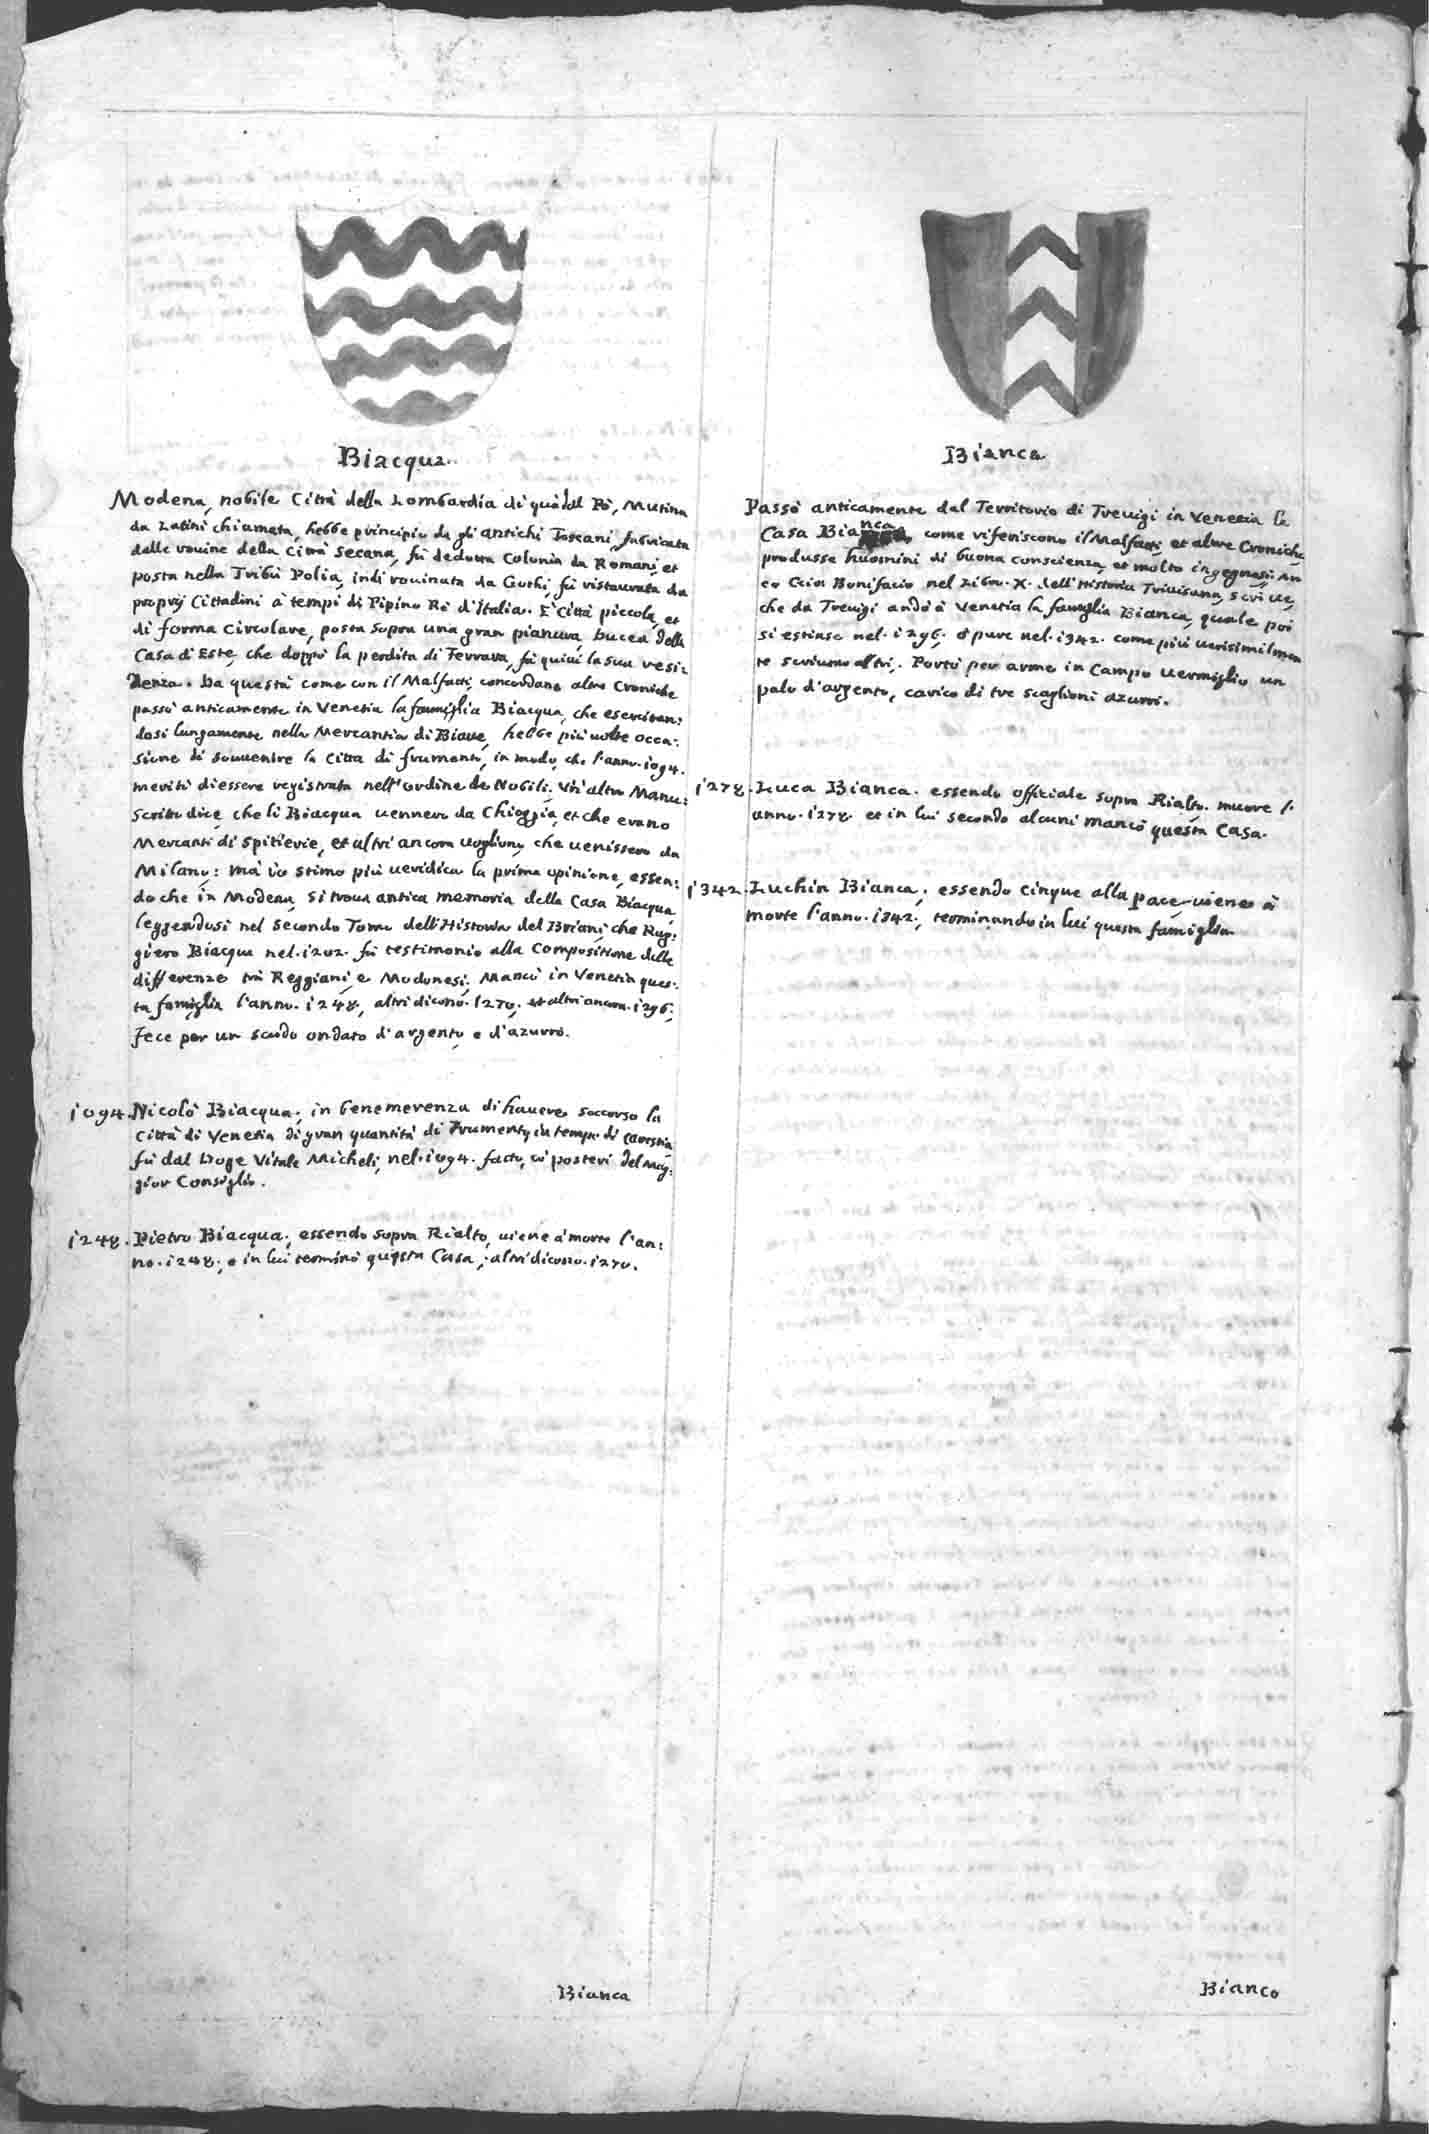 Biacqua.
Modena, nobile Città della Lombardia di quà dal Pò, Mutina
da Latini chiamata, hebbe principio da gli antichi Toscani, fabricata
dalle rouine della Città Secana, fù dedotta Colonia da Romani, et
posta nella Tribù Polia, indi rouinata da Gothi, fù ristaurata da
proprij Cittadini à tempi di Pipino Rè d'Italia. È Città piccola, et
di forma Circolare, posta sopra una gran pianura, bucea della
Casa d'Este, che doppò la perdita di Ferrara, fà quiui la sua resi:
denza. Da questa come con il Malfatti, concordano altre Croniche
passò anticamente in Venetia la famiglia Biacqua, che esercitan:
dosi lungamente nella Mercantia di Biave, hebbe più uolte occa:
sione di souuenire la Città di frumento, in modo, che l'anno. 1094.
meritò di essere registrata nell'ordine de Nobili. Un'altro Manu:
scritto dice, che li Biacqua uennero da Chioggia, et che erano
Mercanti di Spitierie, et altri ancora uogliono, che uenissero da
Milano: mà io stimo più ueridica la prima opinione, essen:
do che in Modena, si troua antica memoria della Casa Biacqua,
leggendosi nel secondo Tomo dell'Historia del Briani, che Rug:
giero Biacqua nel. 1202. fù testimonio alla Compositione delle
differenze trà Reggiani, e Modonesi. Mancò in Venetia ques:
ta famiglia l'anno. 1248, altri dicono. 1270, et altri ancora. 1296.
Fece per un scudo ondato d'argento, e d'azurro.
1094. Nicolò Biacqua, in benemerenza di hauere soccorso la
Città di Venetia di gran quantità di Frumento, in tempo di Carestia
fù dal Doge Vitale Micheli, nel. 1094. fatto, co' posteri del Mag:
gior Consiglio.
1248. Pietro Biacqua, essendo sopra Rialto, uiene à morte l'an:
no. 1248, e in lui terminò questa Casa, altri dicono. 1270.
Bianca
Bianca
Passò anticamente dal Territorio di Treuigi in Venetia la
Casa Bianca, come riferiscono il Malfatti, et altre Croniche,
produsse huomini di buona conscienza, et molto ingegnosi: An
co Bonifacio nel Libro. X. dell'Historia Triuisana, scriue,
che da Treuigi andò à Venetia la famiglia Bianca, quale poi
si estinse nel. 1296. ò pure nel. 1342. come più uerisimilmen
te scriuono altri. Portò per arme in Campo uermiglio un
palo d'argento, carico di tre scaglioni azurri.
1278. Luca Bianca. essendo offitiale sopra Rialto. muore l'
anno. 1278. et in lui secondo alcuni mancò questa Casa.
1342. Luchin Bianca, essendo cinque alla pace, uiene à
morte l'anno. 1342, terminando in lui questa famiglia.
Bianco